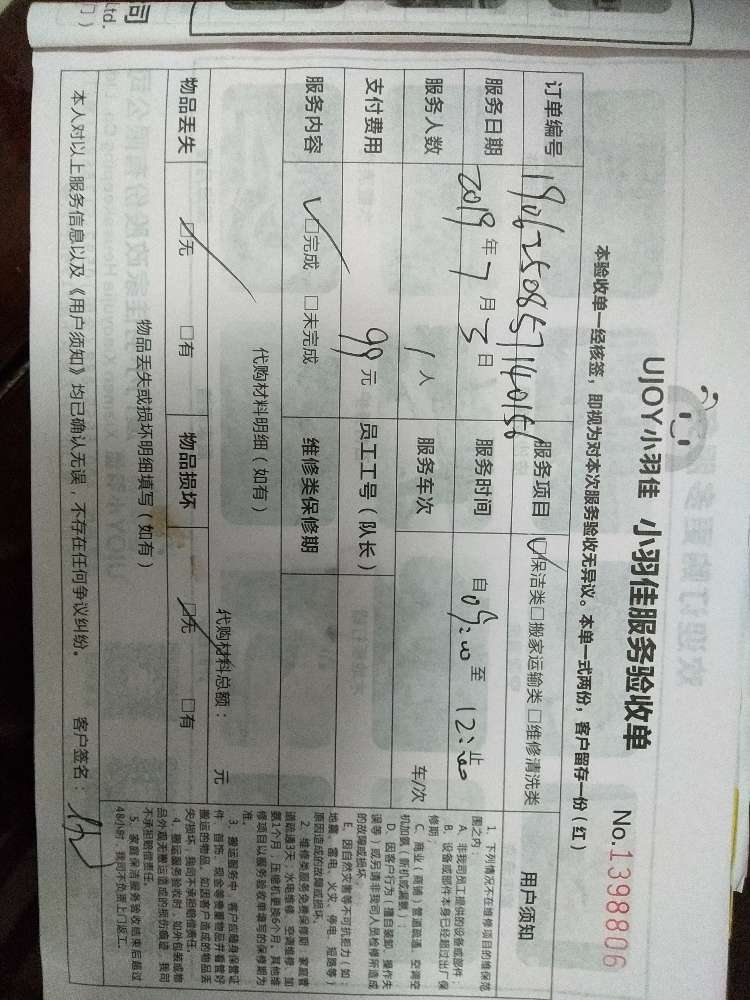 UJOY小羽佳 小羽佳服务验收单
No.1398806
本验收单一经核签，即视为对本次服务验收无异议。本单一式两份，客户留存一份（红）
订单编号 1906250857140156 服务项目 ☑保洁类□搬家运输类□维修清洗类
服务日期 2019年7月3日 服务时间 自09:00至12:00止
服务人数 1人 服务车次 车/次
支付费用 99元 员工工号（队长）
服务内容 ☑完成 □未完成 维修类保修期
代购材料明细（如有）
代购材料总额： 元
物品丢失 ☑无 □有 物品损坏 ☑无 □有
物品丢失或损坏明细填写（如有）
本人对以上服务信息以及《用户须知》均已确认无误，不存在任何争议纠纷。 客户签名：
用户须知
1、下列情况不在维修项目的维保范
围之内：
A、非我司员工提供的设备或部件；
B、设备或部件本身已经超过出厂保
修期；
C、商业（商铺）管道疏通、空调空
机加氟（新机或漏氟）；
D、因客户行为（擅自装卸、操作失
误等）或另请非我司人员检修所造成
的故障或损坏；
E、因自然灾害等不可抗能力（如：
地震、雷电、火灾、停电、短路等）
原因造成的故障或损坏。
2、维修类服务免费保修期：家庭管
道疏通3天，水电维修、空调维修、加
氨1个月，压缩机更换6个月，其他维
修项目以服务验收单填写的保修期为
准。
3、搬运服务中，客户应随身保管证
件、首饰、现金等贵重物品并看管好
搬运的物品，如因客户造成的物品丢
失/损坏，我司不承担赔偿责任。
4、搬运服务验收时，如外包装或物
品外观无搬运造成的损伤痕迹，我司
不承担赔偿责任。
5、家庭保洁服务验收结束后超过
48小时，我司不负责上门返工。
司
Ltd.